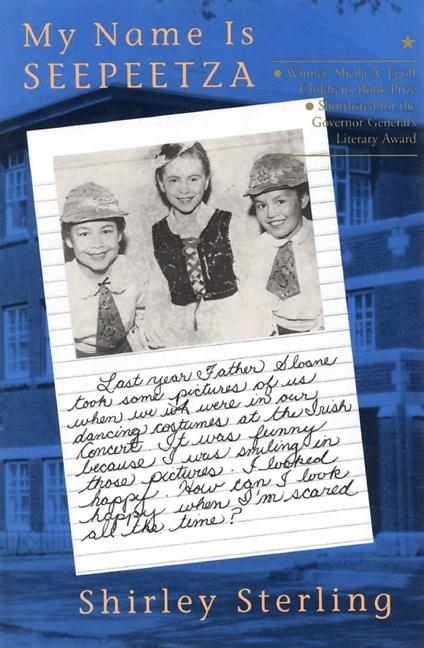 My Name Is
SEEPEETZA
★
● Winner, Sheila A. Egoff
Children's Book Prize
● Shortlisted for the
Governor General's
Literary Award
Last year Father Sloane
took some pictures of us
when we were in our
dancing costumes at the Irish
Concert. It was funny
because I was smiling in
those pictures. I looked
happy. How can I look
happy when I'm scared
all the time?
Shirley Sterling